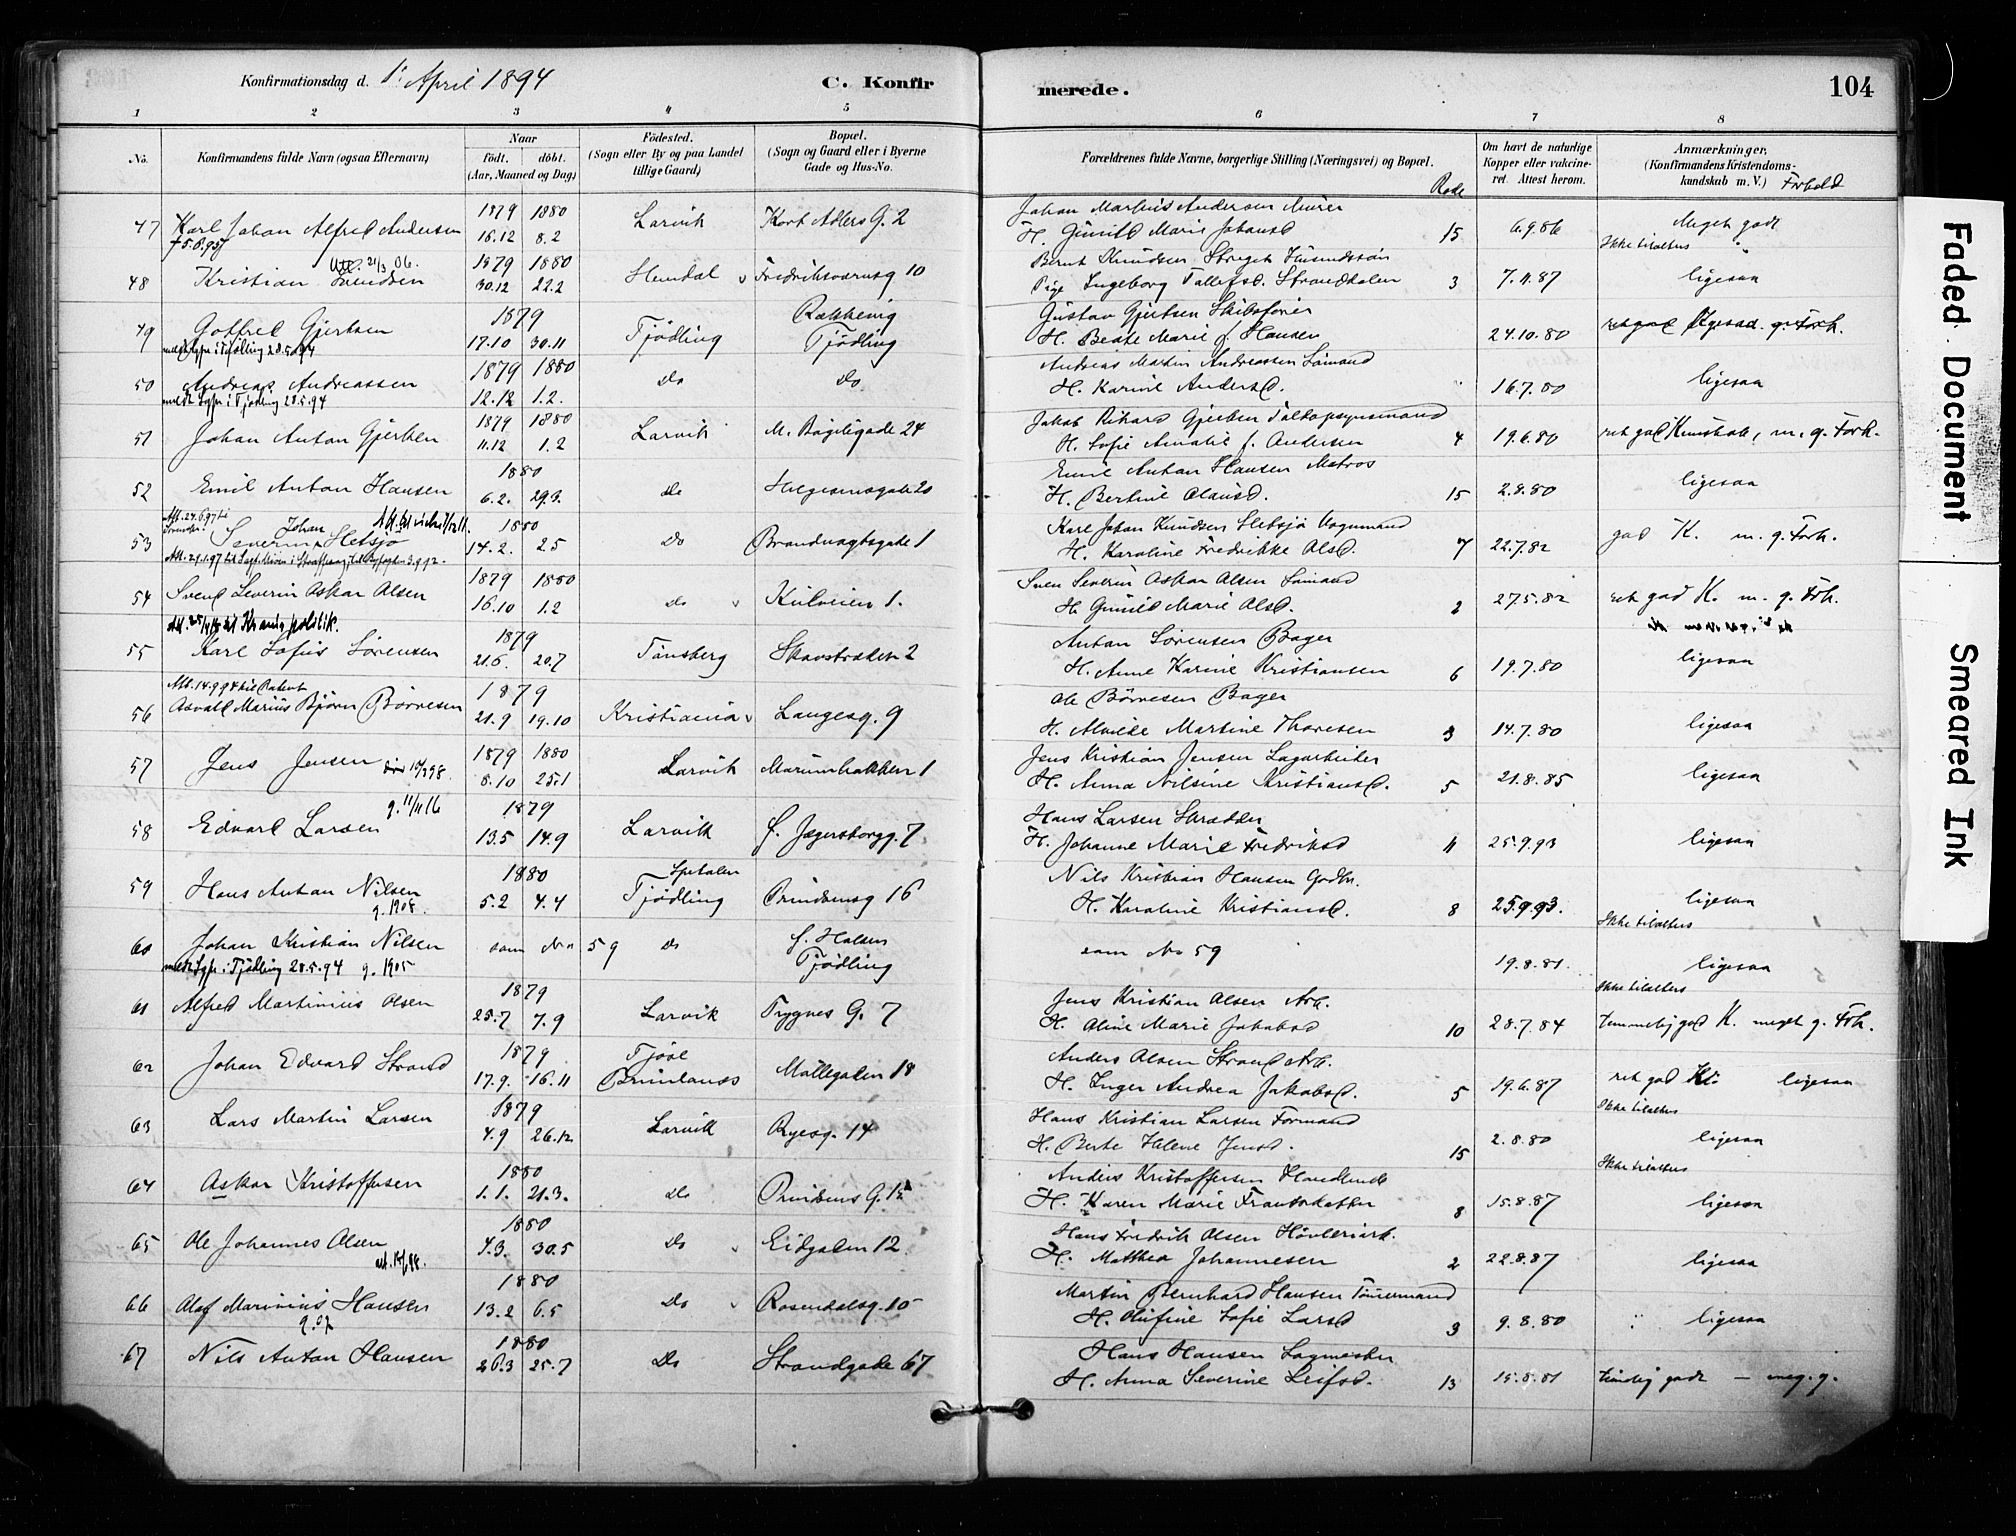 Konfirmationsdag d. 1. April 1894
C. Konfirmerede.
104
1 2 3 4 5 6 7 8
No.
Konfirmandens fulde Navn (ogsaa Efternavn)
Naar
födt. döbt.
(Aar, Maaned og Dag)
Födested.
(Sogn eller By og paa Landet
tillige Gaard)
Bopæl.
(Sogn og Gaard eller i Byerne
Gade og Hus-No.
Forældrenes fulde Navne, borgerlige Stilling (Næringsvei) og Bopæl.
Rode
Om havt de naturlige
Kopper eller vakcine-
ret. Attest herom.
Anmærkninger,
(Konfirmandens Kristendoms-
kundskab m. V.) Forhold
47 Karl Johan Alfred Andersen 1879 16.12 1880 8.2 Larvik Kort Adlers G. 2 Johan Marthis Andersen Murer
H. Gunild Marie Johansd 15 6.9.86 Meget godt
Ikke tilalters
48 Kristian Svendsen 1879 30.12 1880 22.2 Hemdal Fredriksværnsg 10 Bernt Knudsen
Pige Ingeborg Tallefsd. Strandkalen 3 7.11.87 ligesaa
49 Gotfred Gjertsen 1879 17.10 30.11 Tjödling Rækkevig
Tjödling Gustav Gjertsen Skibsförer
H. Beate Marie f. Hansen 24.10.80
meldt Sgpr i Tjødling 28.5.94
50 Andreas Andreassen 1879 12.12 1880 1.2. Do Do Andreas Martin Andreassen Sömand
H. Karine Andersd. 16.7.80 ligesaa
meldt Sgpr i Tjødling 28.5.94
51 Johan Anton Gjertsen 1879 11.12 1880 1.2 Larvik M. Bøgeligade 24 Jakob Rikard Gjertsen Toldopsynsmand
H. Sofie Amalie f. Andersen 4 19.6.80 ret god Kundskab, m. g. Forh.
52 Emil Anton Hansen 1880 6.2. 29.3. Do Helgesensgate 20 Emil Anton Hansen Matros
H. Bertine Olausd. 15 2.8.80 ligesaa
53 Severin Johan Hetsjø 1880 14.2. 2.5 Do Brandvagtsgade 1 Karl Johan Knudsen Hetsjø Vognmand
H. Karoline Fredrikke Olsd. 7 22.7.82 god K. m. g. Forh.
54 Svend Severin Oskar Olsen 1879 16.10 1880 1.2 Do Kulveien 1. Sven Severin Oskar Olsen Sömand
H. Gunild Marie Olsd. 2 27.5.82 ret god K. m. g. Foh.
55 Karl Sofus Sörensen 1879 21.6. 20.7 Tönsberg Skovstrædet 2 Anton Sörensen Bager
H. Anne Karine Kristiansen 6 19.7.80 ligesaa
Att. 14.9.94
56 Osvald Marius Björn Börresen 1879 21.9 19.10 Kristiania Langesg. 9 Ole Börresen Bager
H. Alvilde Martine Thoresen 3 14.7.80 ligesaa
57 Jens Jensen 1879 8.10 1880 25.1 Larvik Marumbakken 1 Jens Kristian Jensen Lagarbeider
H. Anna Nilsine Kristiansd. 5 21.8.85 ligesaa
g. 11/11 16
58 Edvard Larsen 1879 13.5 14.9 Larvik f. Jægersborgg. 7 Hans Larsen Skrædder
H. Johanne Marie Fredriksd 11 25.9.93 ligesaa
59 Hans Anton Nilsen 1880 5.2 4.4 Spetalen
Tjödling Prindsensg 16 Nils Kristian Hansen Godbr.
H. Karoline Kristiansd. 8 25.9.93. ligesaa
g. 1908.
Ikke tilalters
60 Johan Kristian Nilsen som No 59 Do f. Halsen
Tjödling som No 59 19.8.81. ligesaa
meldt Sgpr i Tjödling 28.5.94 g. 1905
Ikke tilalters
61 Alfred Martinius Olsen 1879 25.7 7.9 Larvik Trygves G. 7 Jens Kristian Olsen Arb.
H. Oline Marie Jakobsd 10 28.7.84 temmelig god K. meget g. Foh.
62 Johan Edvard Strand 1879 17.9. 16.11 Tjöse
Brunlanæs Möllegaden 18 Anders Olsen Strand Arb.
H. Inger Andrea Jakobsd. 5 19.6.87 ret god K. ligesaa
Ikke tilalters
63 Lars Martin Larsen 1879 4.9 26.12 Larvik Ryesg. 14 Hans Kristian Larsen Formand
H. Berte Helene Jensd. 15 2.8.80 ligesaa
Ikke tilalters
64 Oskar Kristoffersen 1880 1.1. 21.3. Do Prindsens G. 15 Anders Kristoffersen Handlende
H. Karen Marie Frantsdatter 8 15.8.87 ligesaa
65 Ole Johannes Olsen 1880 4.3. 30.5 Do Eidgaden 12. Hans Fredrik Olsen Høvleriarb.
H. Matthea Johannesen 2 22.8.87 ligesaa
66 Olaf Marinius Hansen 1880 13.2 6.5 Do Rosendalsg. 10 Martin Bernhard Hansen Tömmermand
H. Olufine Sofie Larsd 3 9.8.80 ligesaa
g. 07
67 Nils Anton Hansen 1880 26.3 25.7 Do Strandgade 67 Hans Hansen Lagmester
H. Anna Severine Leifsd. 13 15.8.81 temlig godt — meg. g.
Faded Document
Smeared Ink